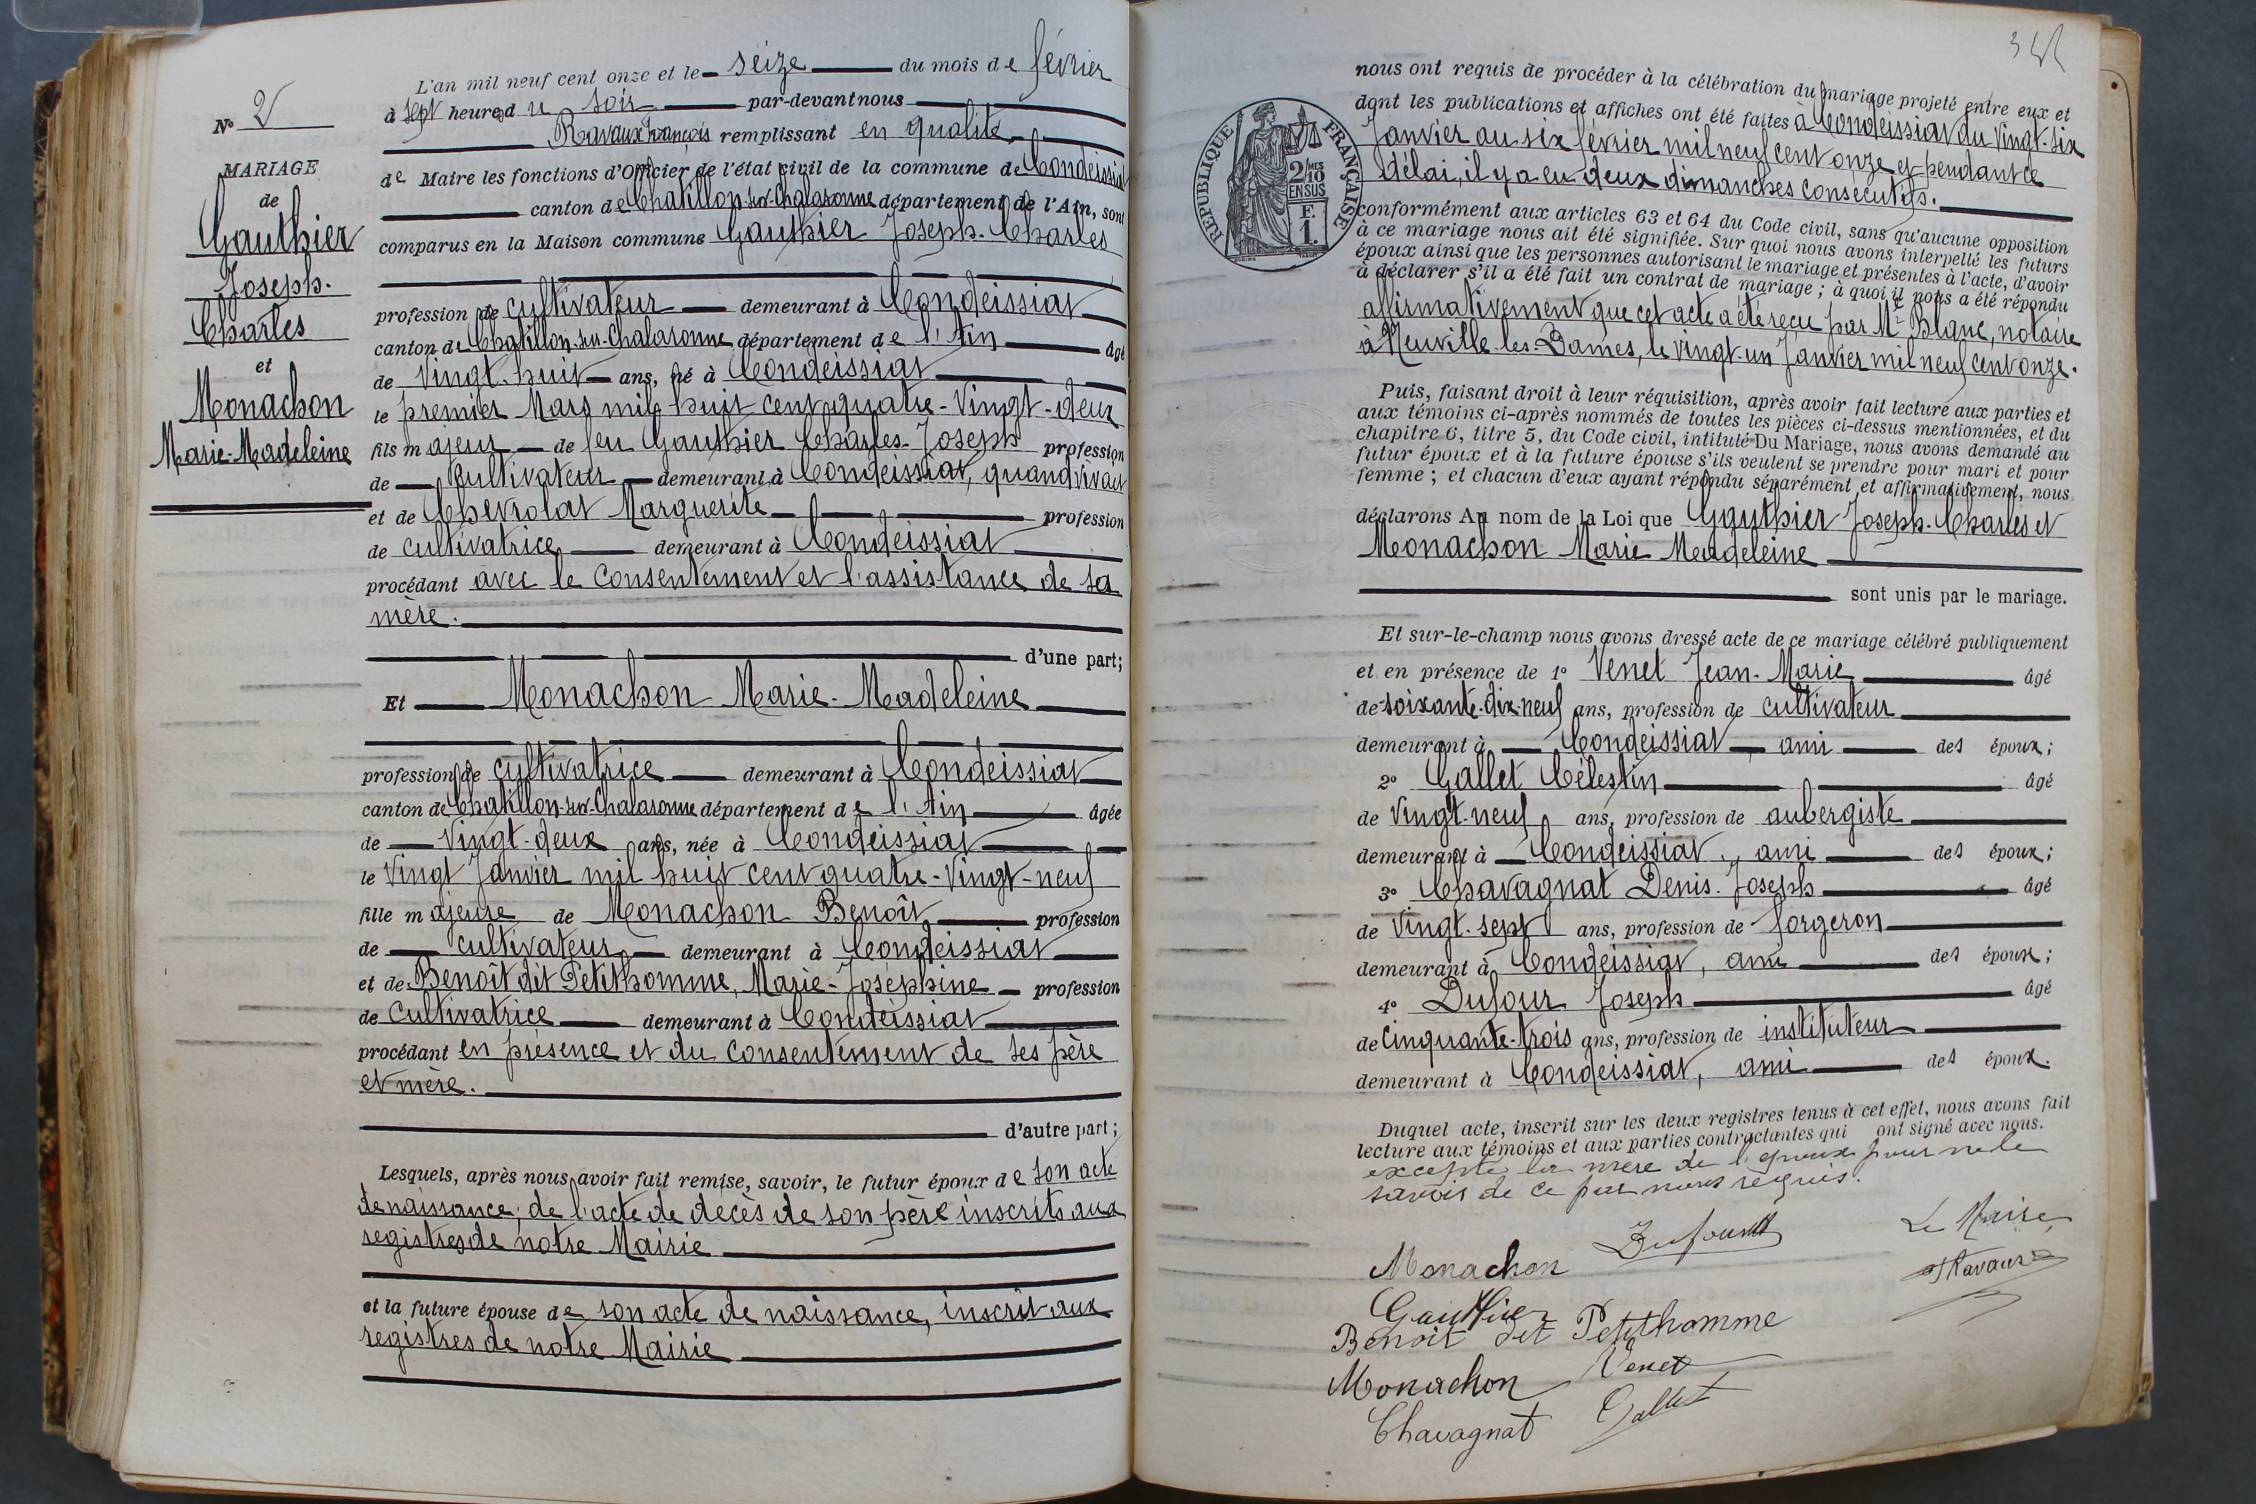 L'an mil neuf cent onze et le seize du mois de février
à sept heures du soir par-devant nous
Ravaux François remplissant en qualité
de Maire les fonctions d'Officier de l'état civil de la commune de Condeissiat
canton de Chatillon-sur-Chalaronne département de l'Ain, sont
comparus en la Maison commune Gauthier Joseph-Charles
profession de cultivateur demeurant à Condeissiat
canton de Chatillon-sur-Chalaronne département de l'Ain âgé
de vingt-huit ans, né à Condeissiat
le premier Mars mil huit cent quatre-vingt-deux
fils majeur de feu Gauthier Charles-Joseph profession
de cultivateur demeurant à Condeissiat, quand vivait
et de Chevrolat Marguerite profession
de cultivatrice demeurant à Condeissiat
procédant avec le consentement et l'assistance de sa
mère.
d'une part;
Et Monachon Marie-Madeleine
profession de cultivatrice demeurant à Condeissiat
canton de Chatillon-sur-Chalaronne département de l'Ain âgée
de vingt-deux ans, née à Condeissiat
le vingt Janvier mil huit cent quatre-vingt-neuf
fille majeure de Monachon Benoît profession
de cultivateur demeurant à Condeissiat
et de Benoît dit Petithomme, Marie-Joséphine profession
de cultivatrice demeurant à Condeissiat
procédant en présence et du consentement de ses père
et mère.
d'autre part;
Lesquels, après nous avoir fait remise, savoir, le futur époux de son acte
de naissance; de l'acte de décès de son père inscrits aux
registres de notre Mairie
et la future épouse de son acte de naissance, inscrit aux
registres de notre Mairie
No 2
MARIAGE
de
Gauthier
Joseph-
Charles
et
Monachon
Marie-Madeleine
nous ont requis de procéder à la célébration du mariage projeté entre eux et
dont les publications et affiches ont été faites à Condeissiat du vingt-six
Janvier au six février mil neuf cent onze et pendant ce
délai, il y a eu deux dimanches consécutifs.
conformément aux articles 63 et 64 du Code civil, sans qu'aucune opposition
à ce mariage nous ait été signifiée. Sur quoi nous avons interpellé les futurs
époux ainsi que les personnes autorisant le mariage et présentes à l'acte, d'avoir
à déclarer s'il a été fait un contrat de mariage; à quoi il nous a été répondu
affirmativement que cet acte a été reçu par Me Blanc, notaire
à Neuville-les-Dames, le vingt-un Janvier mil neuf cent onze.
Puis, faisant droit à leur réquisition, après avoir fait lecture aux parties et
aux témoins ci-après nommés de toutes les pièces ci-dessus mentionnées, et du
chapitre 6, titre 5, du Code civil, intitulé Du Mariage, nous avons demandé au
futur époux et à la future épouse s'ils veulent se prendre pour mari et pour
femme; et chacun d'eux ayant répondu séparément et affirmativement, nous
déclarons Au nom de la Loi que Gauthier Joseph-Charles et
Monachon Marie Madeleine
sont unis par le mariage.
Et sur-le-champ nous avons dressé acte de ce mariage célébré publiquement
et en présence de 1o Venet Jean-Marie âgé
de soixante-dix-neuf ans, profession de cultivateur
demeurant à Condeissiat ami des époux;
2o Gallet Célestin âgé
de vingt-neuf ans, profession de aubergiste
demeurant à Condeissiat, ami des époux;
3o Chavagnat Denis-Joseph âgé
de vingt-sept ans, profession de forgeron
demeurant à Condeissiat, ami des époux;
4o Dufour Joseph âgé
de cinquante-trois ans, profession de instituteur
demeurant à Condeissiat, ami des époux.
Duquel acte, inscrit sur les deux registres tenus à cet effet, nous avons fait
lecture aux témoins et aux parties contractantes qui ont signé avec nous.
excepté la mère de l'époux pour ne le
savoir de ce par nous requis.
Monachon Dufour Le Maire,
Gauthier Ravaux
Benoit dit Petithomme
Monachon Venet
Chavagnat Gallet
RÉPUBLIQUE FRANÇAISE
2/10 MES
EN SUS
F.
1.